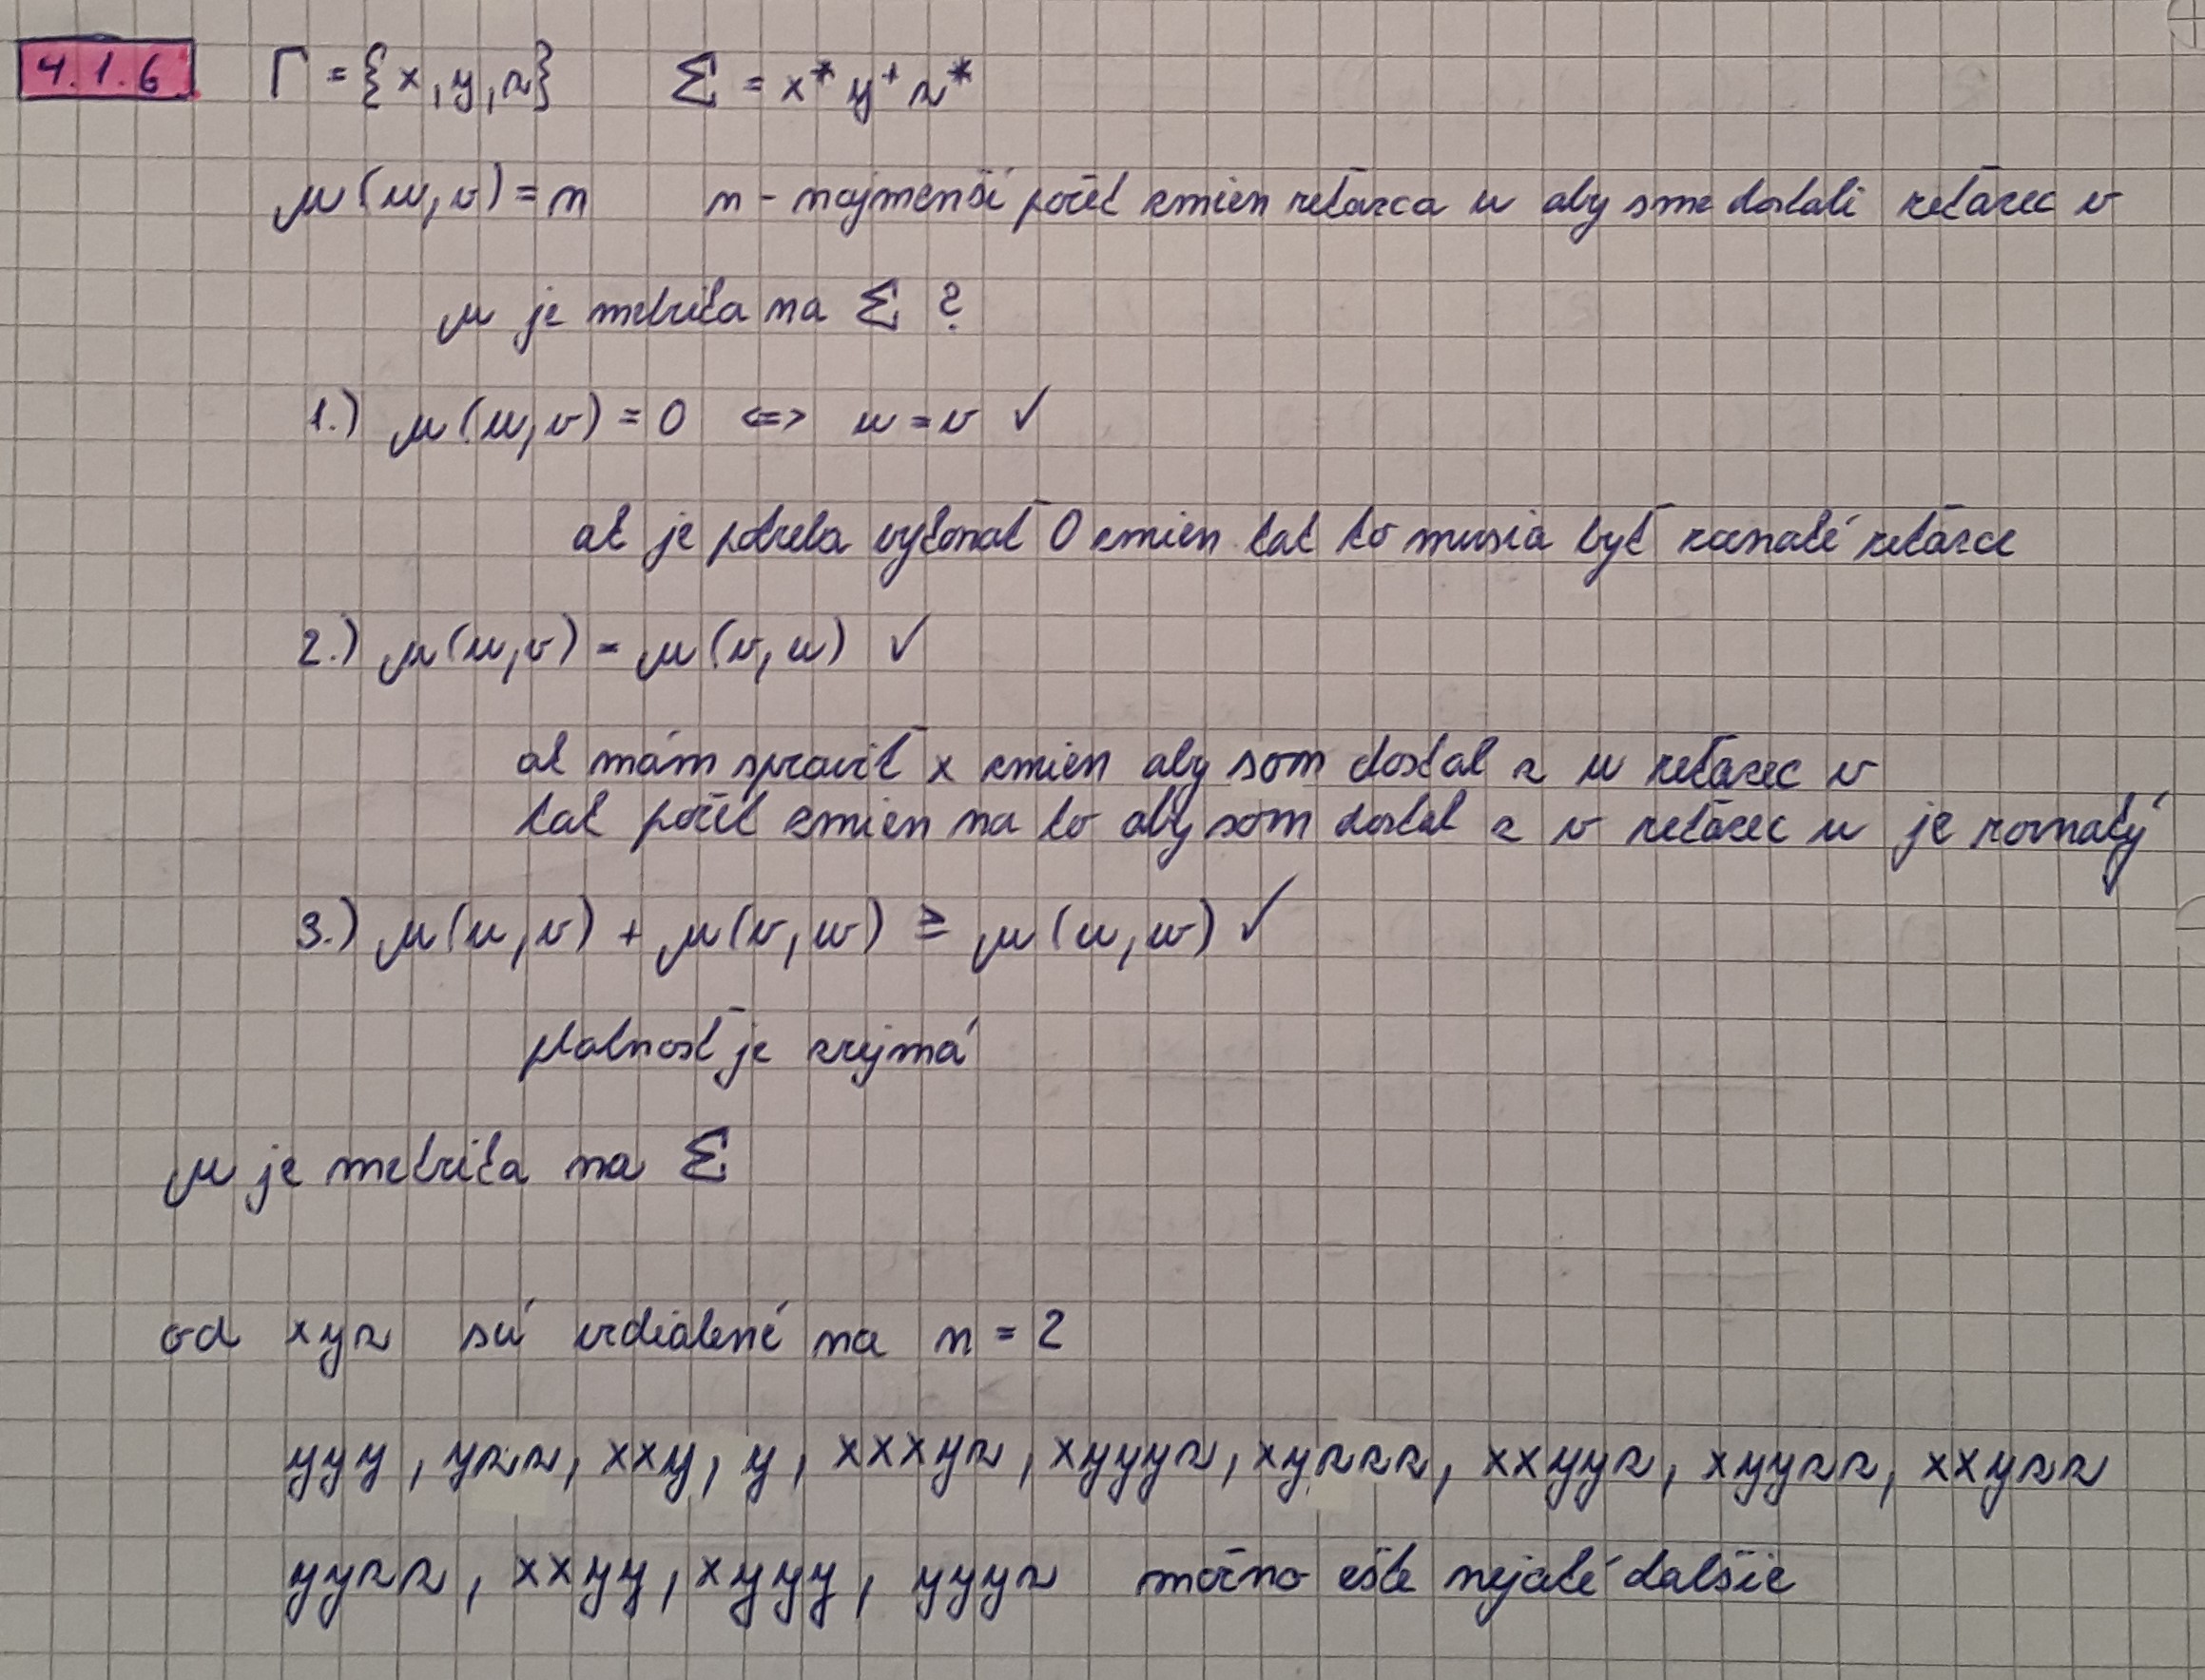 4.1.6 Γ = {x, y, z} Σ = x* y⁺ z*
μ(u,v) = n n - najmenší počet zmien reťazca u aby sme dostali reťazec v
μ je metrika na Σ ?
1.) μ(u,v) = 0 <=> u = v ✓
ak je potreba vykonať 0 zmien tak to musia byť rovnaké reťazce
2.) μ(u,v) = μ(v,u) ✓
ak mám spraviť x zmien aby som dostal z u reťazec v
tak počet zmien na to aby som dostal z v reťazec u je rovnaký
3.) μ(u,v) + μ(v,w) ≥ μ(u,w) ✓
platnosť je zrejmá
μ je metrika na Σ
od xyz sú vzdialené na n = 2
yyy, yzz, xxy, y, xxxyz, xyyyz, xyzzz, xxyyz, xyyzz, xxyzz
yyzz, xxyy, xyyy, yyyz možno ešte nejaké ďalšie